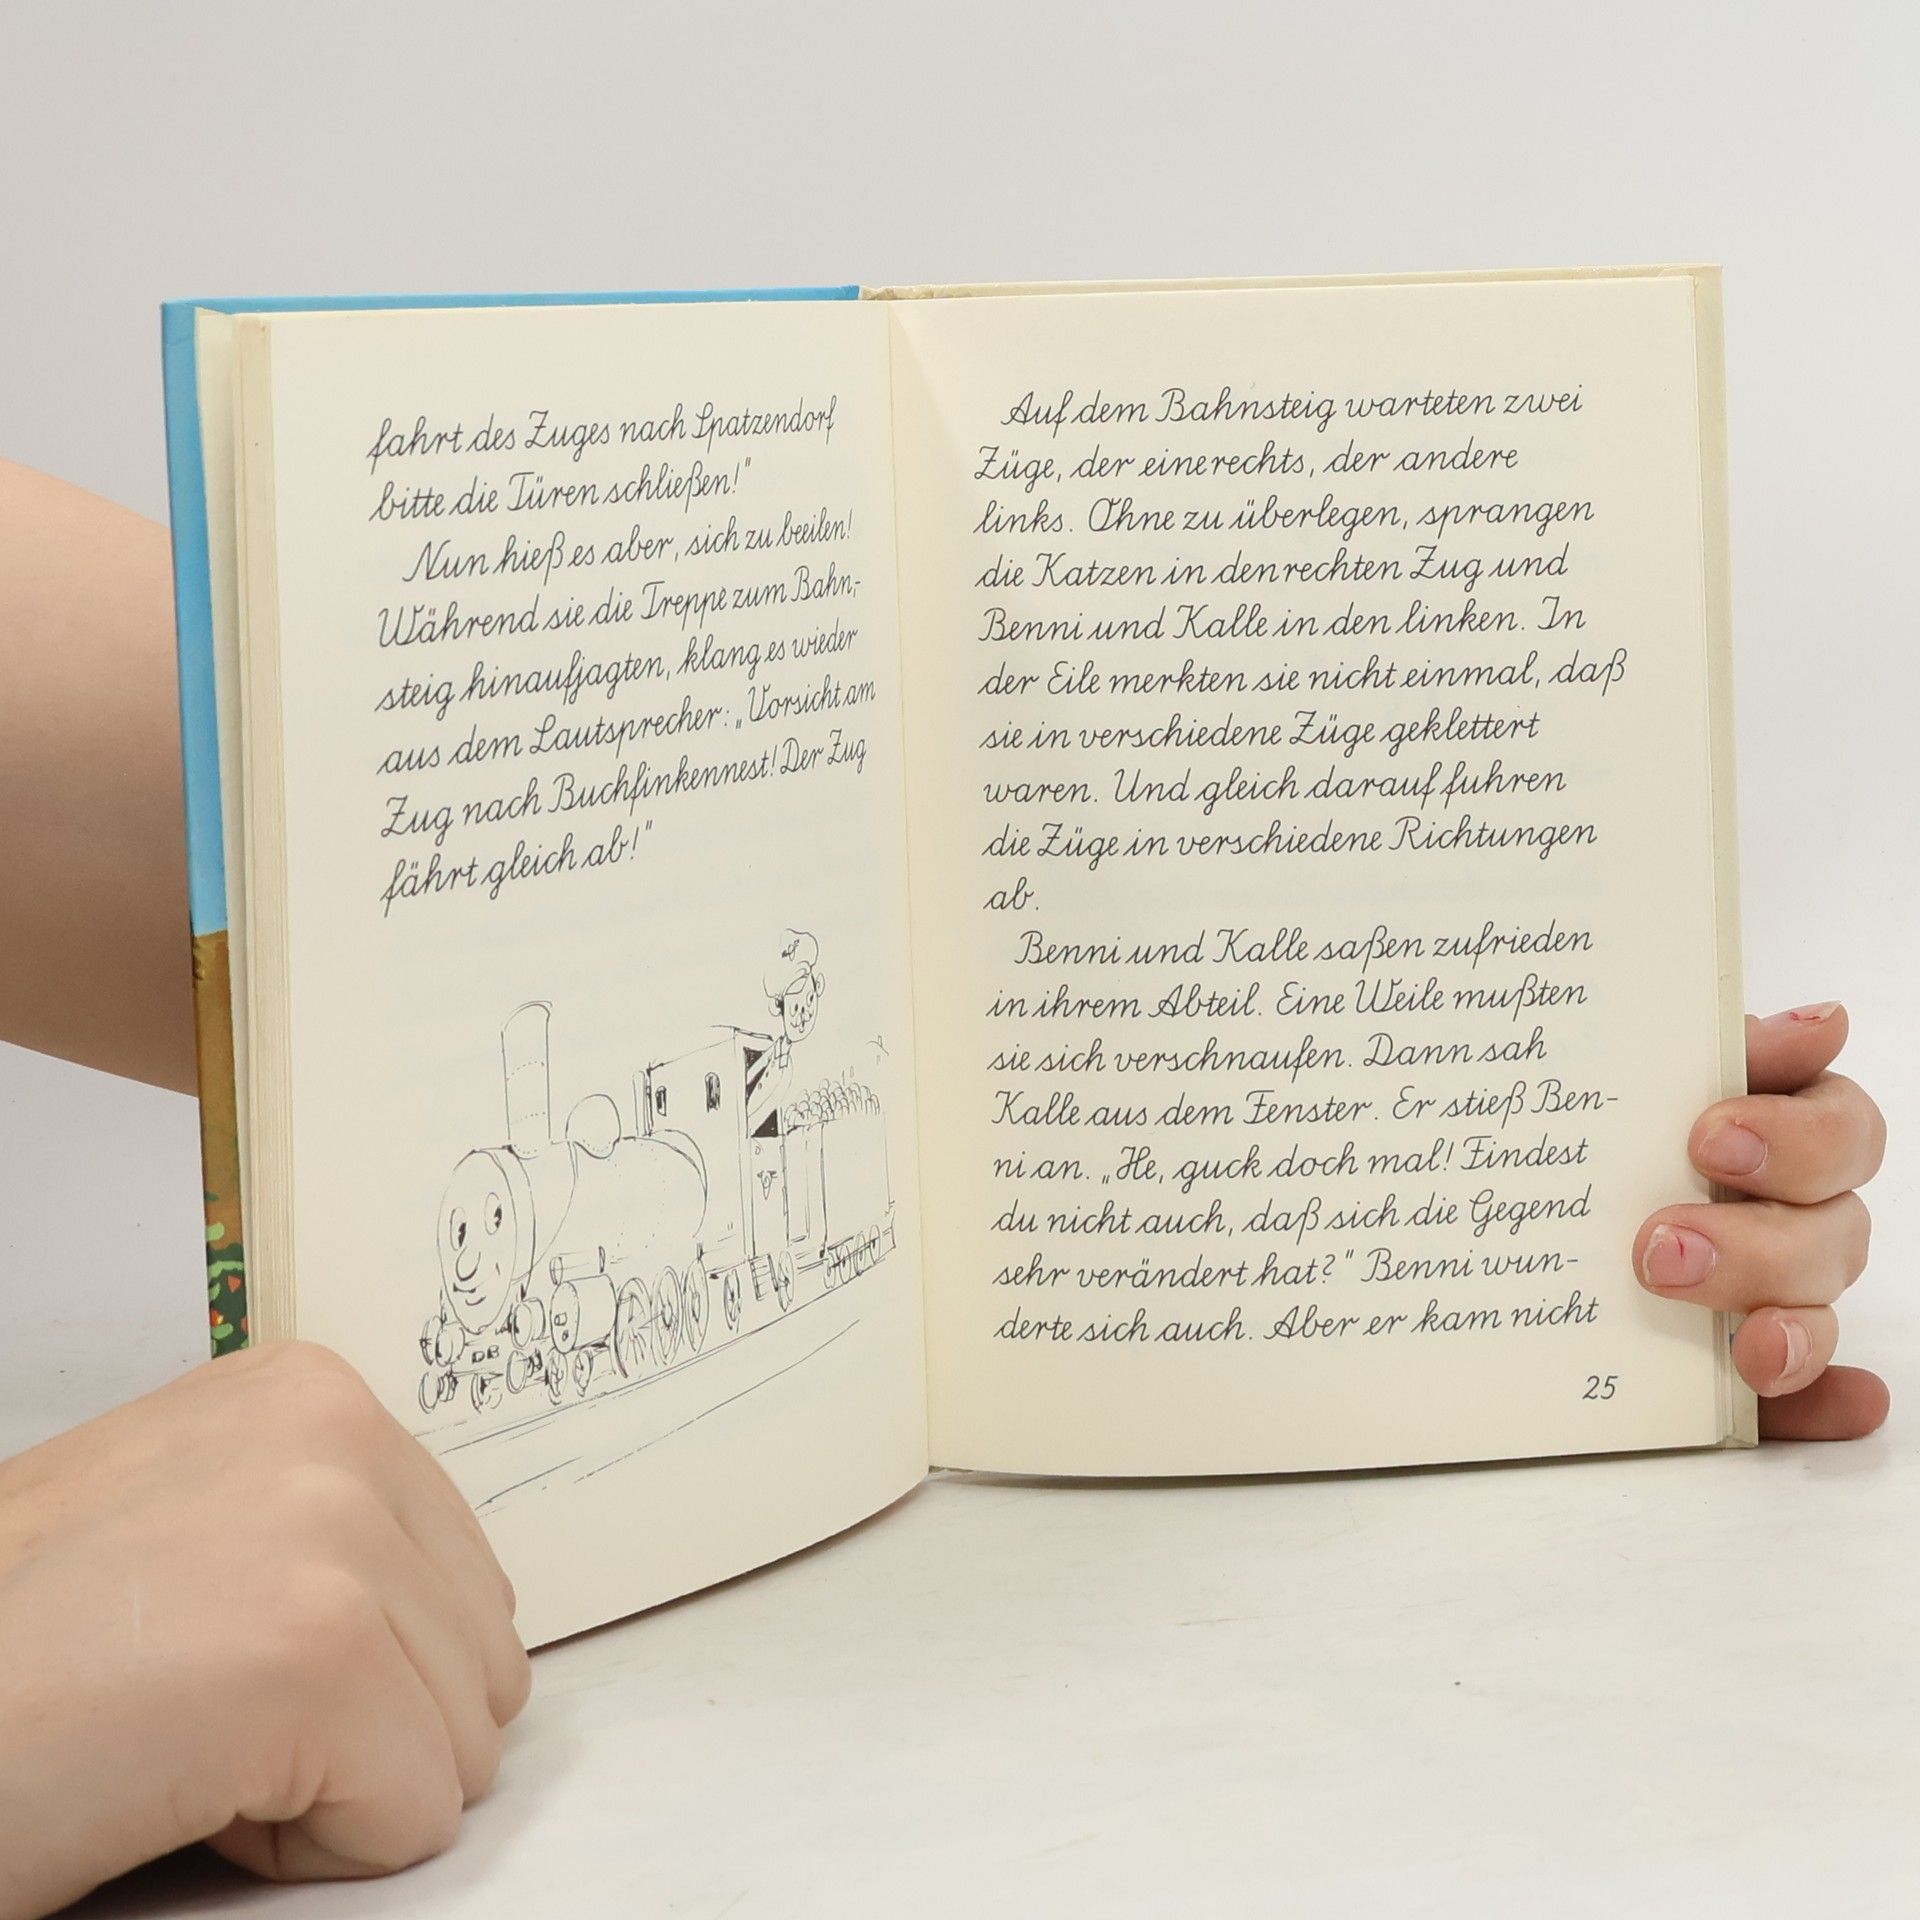 fahrt des Zuges nach Spatzendorf
bitte die Türen schließen!“
Nun hieß es aber, sich zu beeilen!
Während sie die Treppe zum Bahn-
steig hinaufjagten, klang es wieder
aus dem Lautsprecher: „Vorsicht am
Zug nach Buchfinkennest! Der Zug
fährt gleich ab!“
DB
Auf dem Bahnsteig warteten zwei
Züge, der eine rechts, der andere
links. Ohne zu überlegen, sprangen
die Katzen in den rechten Zug und
Benni und Kalle in den linken. In
der Eile merkten sie nicht einmal, daß
sie in verschiedene Züge geklettert
waren. Und gleich darauf fuhren
die Züge in verschiedene Richtungen
ab.
Benni und Kalle saßen zufrieden
in ihrem Abteil. Eine Weile mußten
sie sich verschnaufen. Dann sah
Kalle aus dem Fenster. Er stieß Ben-
ni an. „He, guck doch mal! Findest
du nicht auch, daß sich die Gegend
sehr verändert hat?“ Benni wun-
derte sich auch. Aber er kam nicht
25